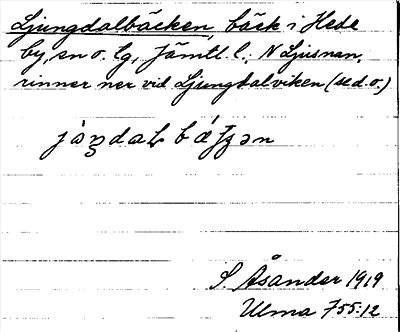 Ljungdalbäcken, bäck i Hede
by, sn o. tg, Jämtl. l.; N Ljusnan,
rinner ner vid Ljungdalviken (se d. o.)
S Åsander 1919
Ulma 755:12